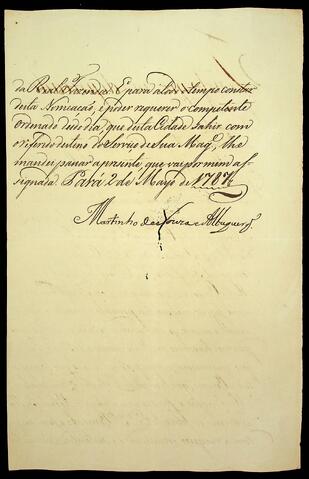 da Real Fazenda: E para a todo tempo constar
desta Nomeacaõ, e poder requerer o competente
Ordenado desde o dia, que desta Cidade sahir com
o referido destino do Serviço de Sua Magᵉ, lhe
mandei passar a prezente, que vai por mim as-
signada. Pará 2 de Mayo de 1787
Martinho de Souza e Albuquerqᵉ